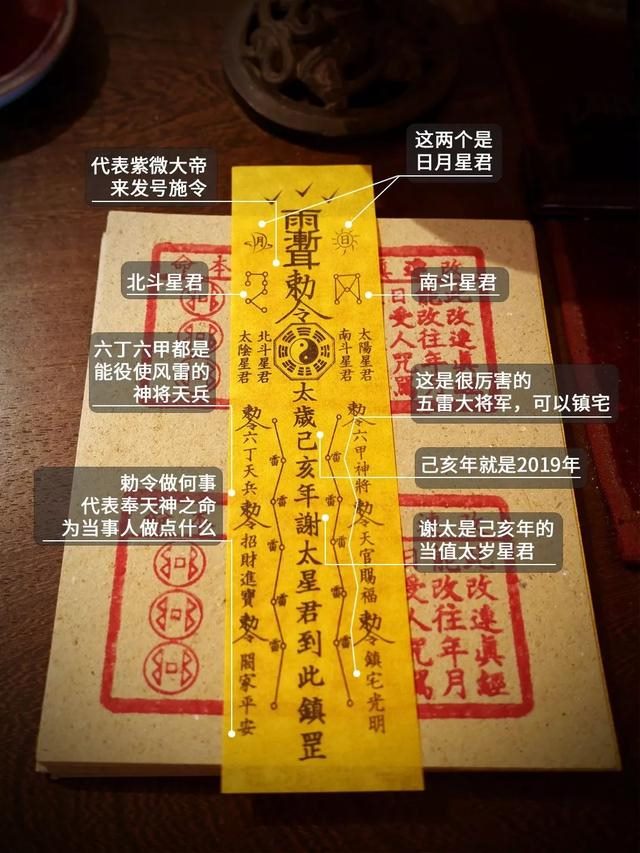 这两个是
日月星君
代表紫微大帝
来发号施令
月
日
北斗星君
南斗星君
勅令
太陰星君
北斗星君
南斗星君
太陽星君
六丁六甲都是
能役使风雷的
神将天兵
这是很厉害的
五雷大将军，可以镇宅
己亥年就是2019年
勅令做何事
代表奉天神之命
为当事人做点什么
谢太是己亥年的
当值太岁星君
太歲己亥年謝太星君到此鎮罡
勅令六丁天兵
勅令招財進寶
勅令闔家平安
勅令六甲神將
勅令天官賜福
勅令鎮宅光明
雷
雷
雷
雷
雷
雷
雷
雷
雷
雷
本命
改往年月
日受人咒罵
改連真經
改往年月
日受人咒罵